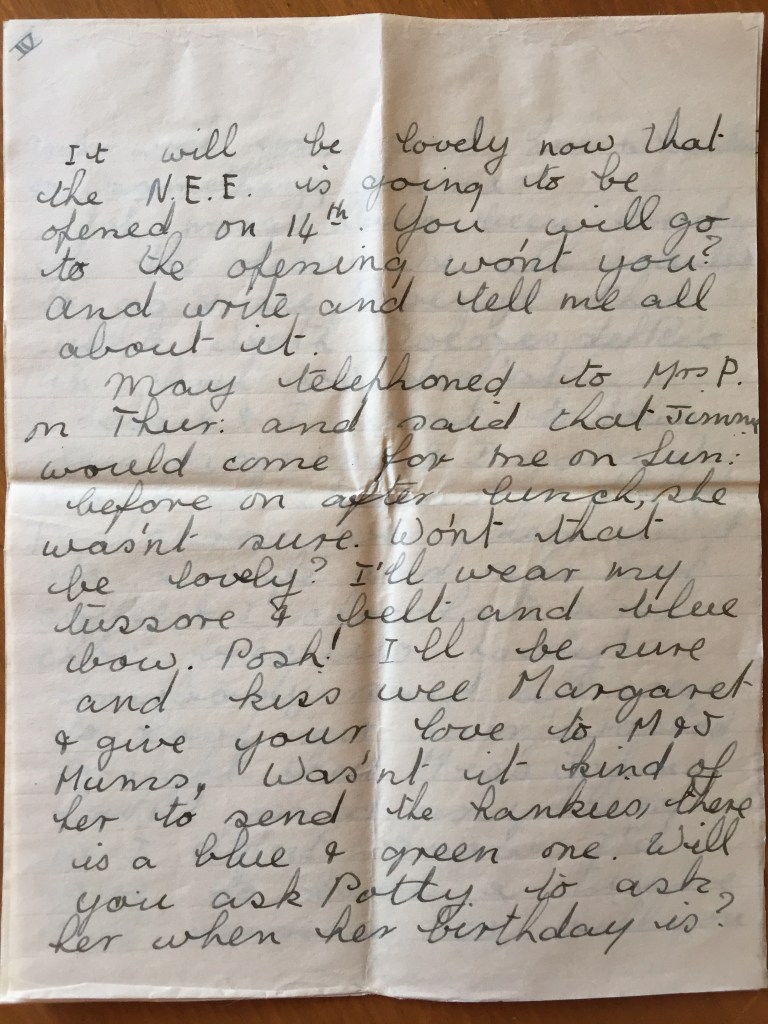 IV
It will be lovely now that
the N.E.E. is going to be
opened on 14th. You will go
to the opening wo'nt you?
and write and tell me all
about it.
May telephoned to Mrs P.
on Thur: and said that Jimmy
would come for me on Sun:
before on after lunch, she
was'nt sure. Wo'nt that
be lovely? I'll wear my
tussore & belt and blue
bow. Posh! I'll be sure
and kiss wee Margaret
& give your love to M & J
Mums. Was'nt it kind of
her to send the hankies, there
is a blue & green one. Will
you ask Potty to ask
her when her birthday is?